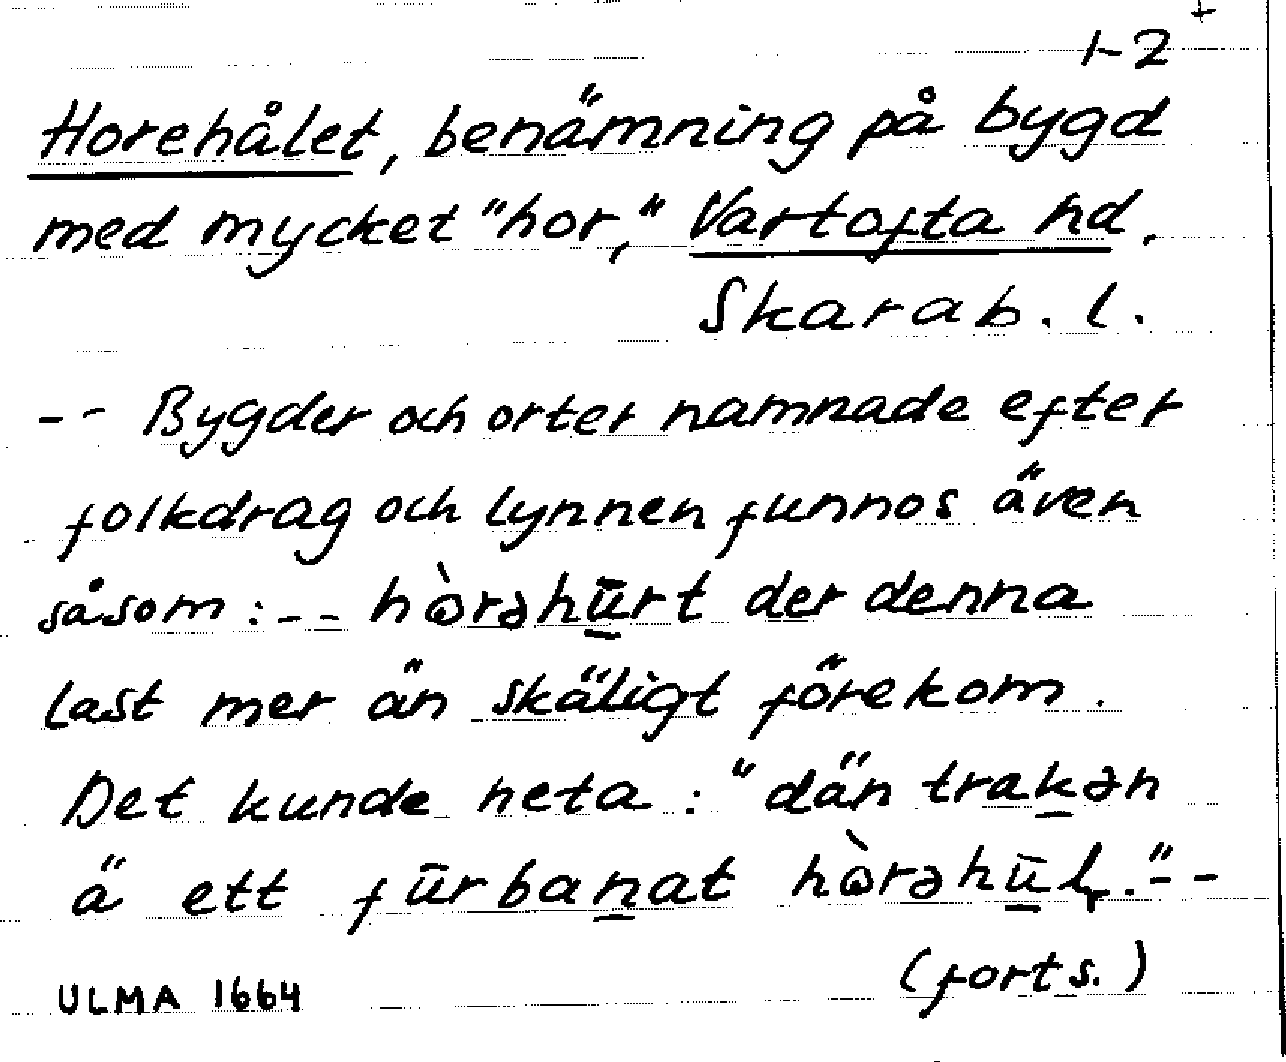 +
1-2
Horehålet, benämning på bygd
med mycket "hor," Vartofta hd,
Skarab. l.
-- Bygder och orter namnade efter
folkdrag och lynnen funnos även
såsom: -- hòrəhūrt der denna
last mer än skäligt förekom.
Det kunde heta: "dän trakən
ä ett fūrbanat hòrəhūḷ."--
(forts.)
ULMA 1664